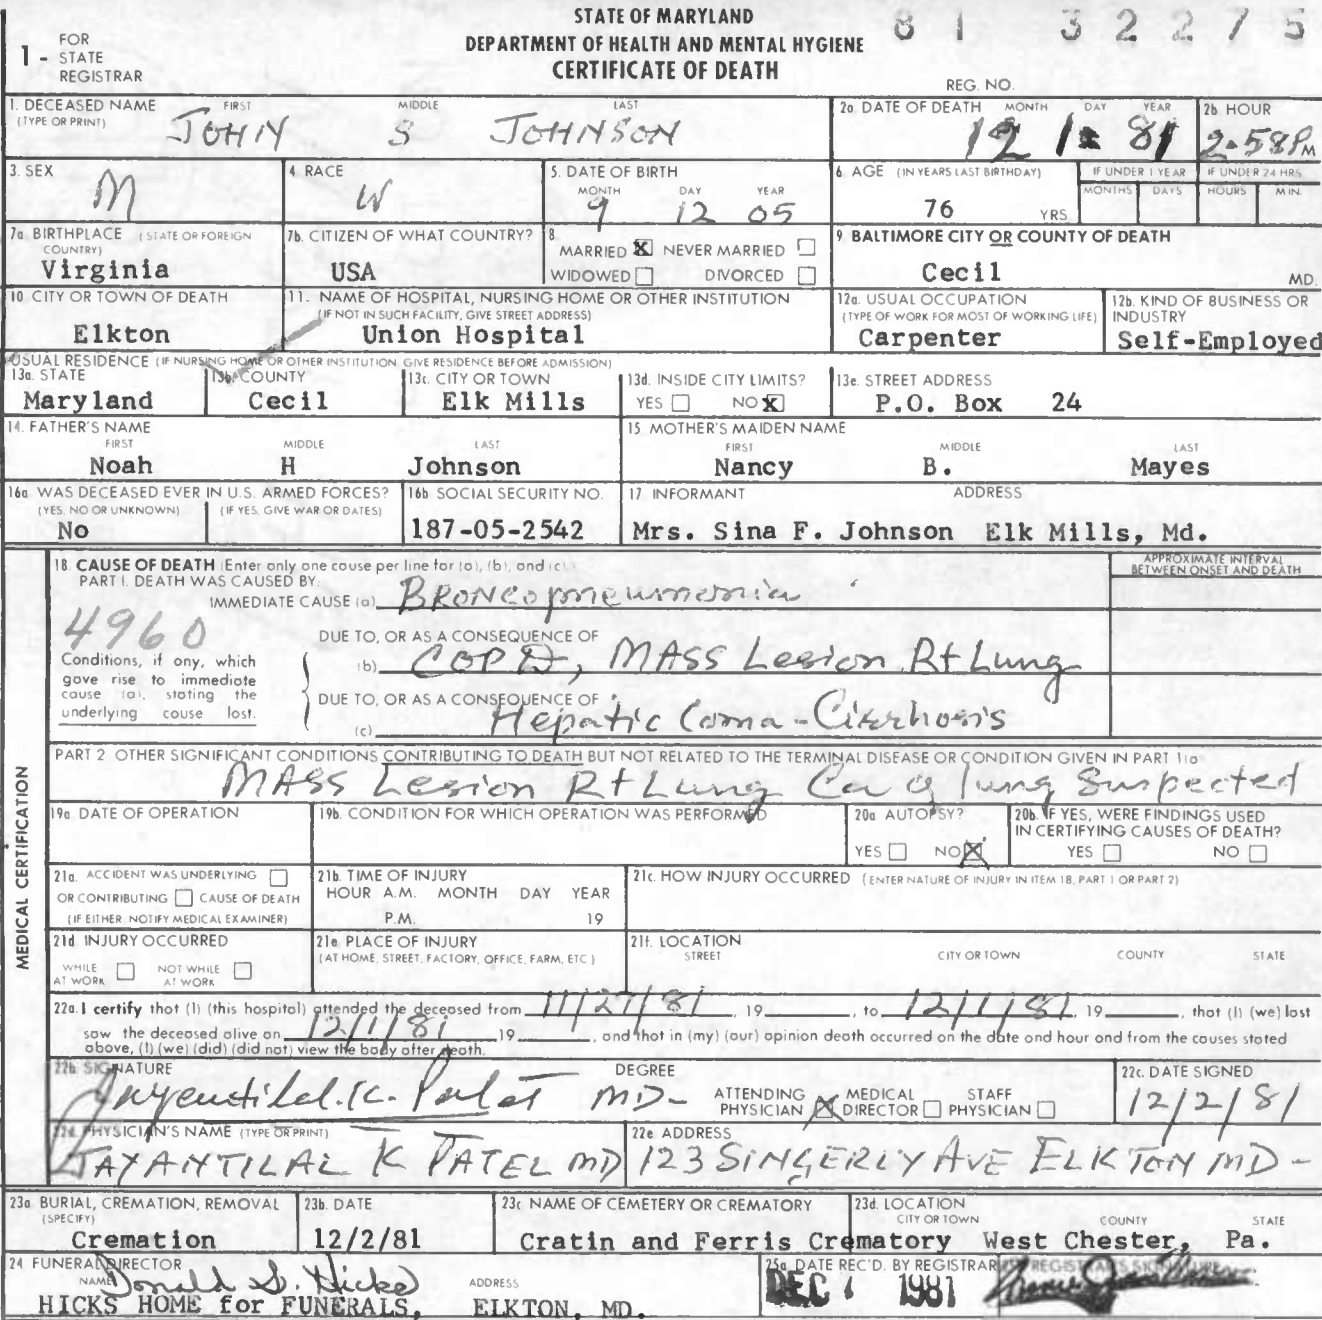 STATE OF MARYLAND
DEPARTMENT OF HEALTH AND MENTAL HYGIENE
CERTIFICATE OF DEATH
81 32275
1 - FOR STATE REGISTRAR
REG. NO.
1. DECEASED NAME (TYPE OR PRINT) FIRST MIDDLE LAST
JOHN S JOHNSON
2a. DATE OF DEATH MONTH DAY YEAR
12 1 81
2b HOUR
2-58PM
3. SEX
M
4. RACE
W
5. DATE OF BIRTH
MONTH DAY YEAR
9 12 05
6. AGE (IN YEARS LAST BIRTHDAY)
76 YRS
IF UNDER 1 YEAR
MONTHS DAYS
IF UNDER 24 HRS
HOURS MIN.
7a BIRTHPLACE (STATE OR FOREIGN COUNTRY)
Virginia
7b. CITIZEN OF WHAT COUNTRY?
USA
8.
MARRIED X NEVER MARRIED
WIDOWED DIVORCED
9. BALTIMORE CITY OR COUNTY OF DEATH
Cecil MD.
10. CITY OR TOWN OF DEATH
Elkton
11. NAME OF HOSPITAL, NURSING HOME OR OTHER INSTITUTION
(IF NOT IN SUCH FACILITY, GIVE STREET ADDRESS)
Union Hospital
12a. USUAL OCCUPATION
(TYPE OF WORK FOR MOST OF WORKING LIFE)
Carpenter
12b. KIND OF BUSINESS OR INDUSTRY
Self-Employed
USUAL RESIDENCE (IF NURSING HOME OR OTHER INSTITUTION GIVE RESIDENCE BEFORE ADMISSION)
13a. STATE
Maryland
13b. COUNTY
Cecil
13c. CITY OR TOWN
Elk Mills
13d. INSIDE CITY LIMITS?
YES NO X
13e. STREET ADDRESS
P.O. Box 24
14. FATHER'S NAME
FIRST MIDDLE LAST
Noah H Johnson
15. MOTHER'S MAIDEN NAME
FIRST MIDDLE LAST
Nancy B. Mayes
16a WAS DECEASED EVER IN U.S. ARMED FORCES?
(YES, NO OR UNKNOWN) (IF YES, GIVE WAR OR DATES)
No
16b SOCIAL SECURITY NO.
187-05-2542
17. INFORMANT ADDRESS
Mrs. Sina F. Johnson Elk Mills, Md.
MEDICAL CERTIFICATION
18. CAUSE OF DEATH (Enter only one cause per line for (a), (b), and (c).)
PART I. DEATH WAS CAUSED BY:
APPROXIMATE INTERVAL BETWEEN ONSET AND DEATH
IMMEDIATE CAUSE (a) BRONCOpneumonia
4960
Conditions, if any, which gave rise to immediate cause (a), stating the underlying cause last.
DUE TO, OR AS A CONSEQUENCE OF
(b) COPD, MASS Lesion Rt Lung
DUE TO, OR AS A CONSEQUENCE OF
(c) Hepatic Coma - Cirrhosis
PART 2 OTHER SIGNIFICANT CONDITIONS CONTRIBUTING TO DEATH BUT NOT RELATED TO THE TERMINAL DISEASE OR CONDITION GIVEN IN PART 1(a)
MASS Lesion Rt Lung Ca of lung Suspected
19a DATE OF OPERATION
19b. CONDITION FOR WHICH OPERATION WAS PERFORMED
20a AUTOPSY?
YES NO X
20b. IF YES, WERE FINDINGS USED IN CERTIFYING CAUSES OF DEATH?
YES NO
21a. ACCIDENT WAS UNDERLYING
OR CONTRIBUTING CAUSE OF DEATH
(IF EITHER, NOTIFY MEDICAL EXAMINER)
21b. TIME OF INJURY
HOUR A.M. MONTH DAY YEAR
P.M. 19
21c. HOW INJURY OCCURRED (ENTER NATURE OF INJURY IN ITEM 18, PART 1 OR PART 2)
21d INJURY OCCURRED
WHILE AT WORK NOT WHILE AT WORK
21e PLACE OF INJURY
(AT HOME, STREET, FACTORY, OFFICE, FARM, ETC.)
21f. LOCATION
STREET CITY OR TOWN COUNTY STATE
22a. I certify that (I) (this hospital) attended the deceased from 11/27/81, 19 , to 12/1/81, 19 , that (I) (we) last
saw the deceased alive on 12/1/81 19 , and that in (my) (our) opinion death occurred on the date and hour and from the causes stated
above, (I) (we) (did) (did not) view the body after death.
22b SIGNATURE DEGREE
Jayantilal. K. Patel MD-
ATTENDING PHYSICIAN X MEDICAL DIRECTOR STAFF PHYSICIAN
22c. DATE SIGNED
12/2/81
22d. PHYSICIAN'S NAME (TYPE OR PRINT)
JAYANTILAL K PATEL MD
22e ADDRESS
123 SINGERLY AVE ELKTON MD-
23a BURIAL, CREMATION, REMOVAL
(SPECIFY)
Cremation
23b. DATE
12/2/81
23c NAME OF CEMETERY OR CREMATORY
Cratin and Ferris Crematory
23d. LOCATION
CITY OR TOWN COUNTY STATE
West Chester, Pa.
24 FUNERAL DIRECTOR
NAME Donald S. Hicks ADDRESS
HICKS HOME for FUNERALS, ELKTON, MD.
25a DATE REC'D. BY REGISTRAR
DEC 1981
REGISTRAR'S SIGNATURE